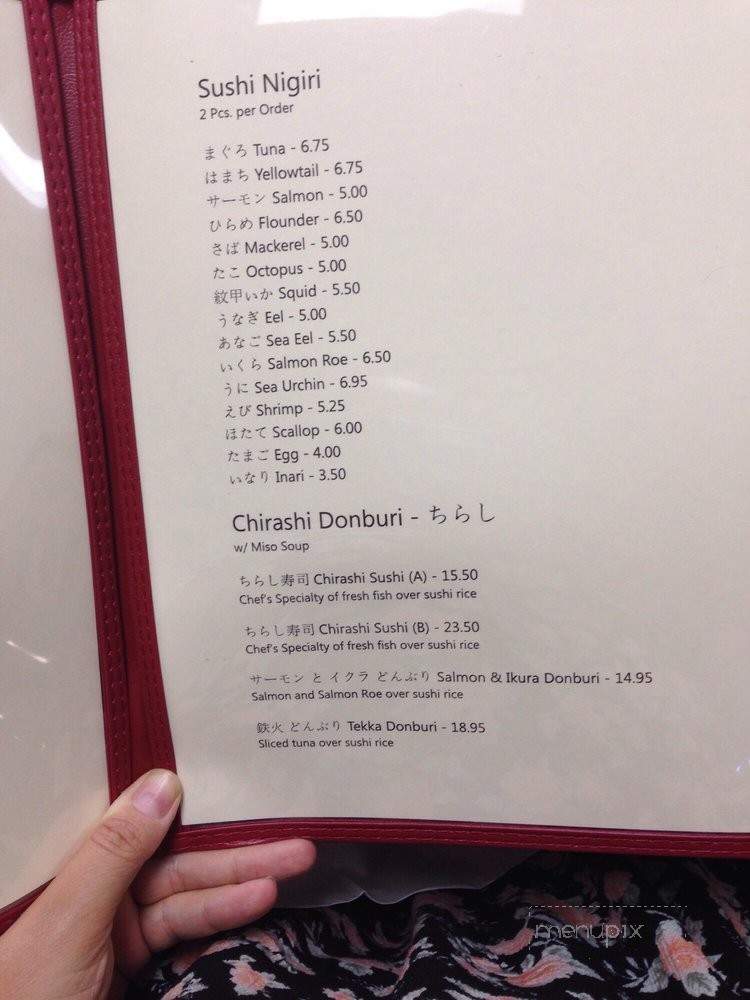 Sushi Nigiri
2 Pcs. per Order
まぐろ Tuna - 6.75
はまち Yellowtail - 6.75
サーモン Salmon - 5.00
ひらめ Flounder - 6.50
さば Mackerel - 5.00
たこ Octopus - 5.00
紋甲いか Squid - 5.50
うなぎ Eel - 5.00
あなご Sea Eel - 5.50
いくら Salmon Roe - 6.50
うに Sea Urchin - 6.95
えび Shrimp - 5.25
ほたて Scallop - 6.00
たまご Egg - 4.00
いなり Inari - 3.50
Chirashi Donburi - ちらし
w/ Miso Soup
ちらし寿司 Chirashi Sushi (A) - 15.50
Chef's Specialty of fresh fish over sushi rice
ちらし寿司 Chirashi Sushi (B) - 23.50
Chef's Specialty of fresh fish over sushi rice
サーモン と イクラ どんぶり Salmon & Ikura Donburi - 14.95
Salmon and Salmon Roe over sushi rice
鉄火 どんぶり Tekka Donburi - 18.95
Sliced tuna over sushi rice
menupix